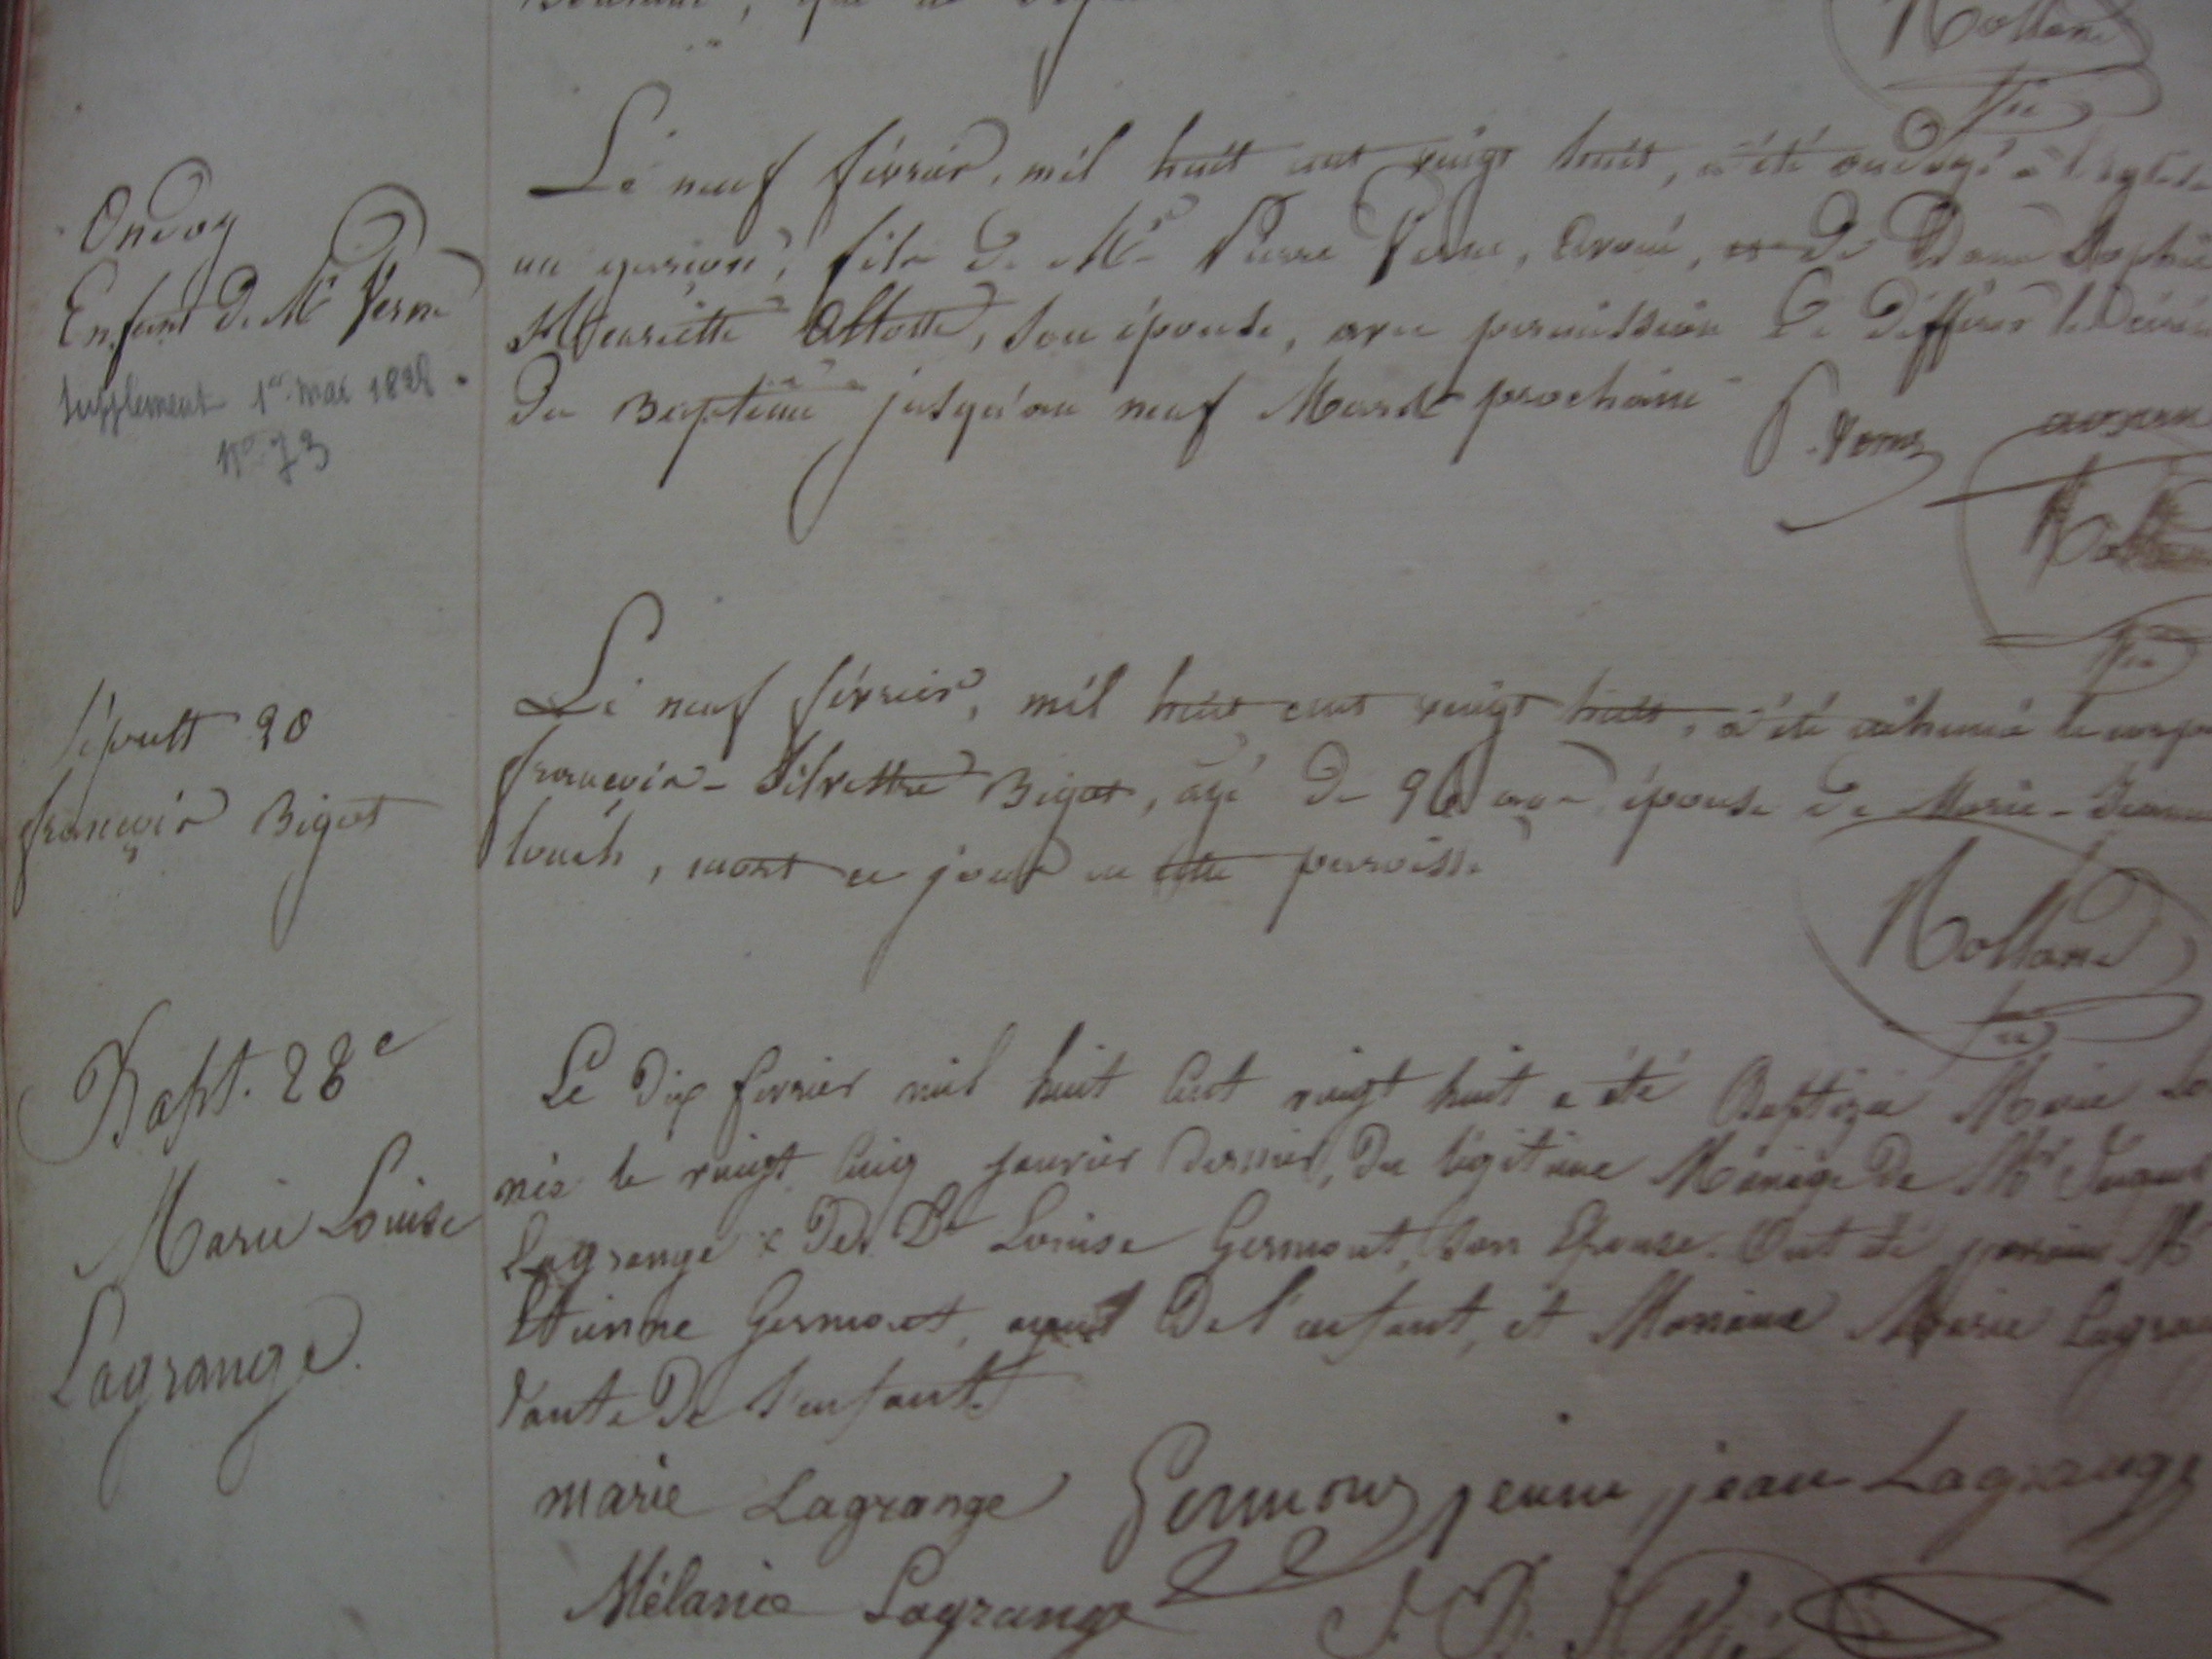 Rolland
Ondoy
Enfant de Mr Verne
Supplement 1er mai 1828.
N° 73
Le neuf février, mil huit cent vingt huit, a été ondoyé à l'église
un garçon, fils de Mr Pierre Verne, avoué, et de Dame Sophie
Henriette Allotte, son épouse, avec permission de différer le
du Baptême jusqu'au neuf Mars prochain
P. Verne avoué
Sépult 20
François Bigot
Le neuf février, mil huit cent vingt huit, a été inhumé le corps
François-Silvestre Bigot, âgé de 96 ans, épouse de Marie-Jeanne
, mort ce jour en cette paroisse
Rolland
Bapt. 28e
Marie Louise
Lagrange.
Le dix fevrier mil huit cent vingt huit a été Baptizée Marie Lo
née le vingt cinq janvier dernier, du légitime Mariage de Mr
Lagrange & de De Louise Germont, son Epouse. Ont été parain Mr
Etienne Germont, ayeul de l'enfant, et Maraine Marie Lagra
tante de l'enfant.
marie Lagrange Germont jeune jean Lagrange
Mélanie Lagrange